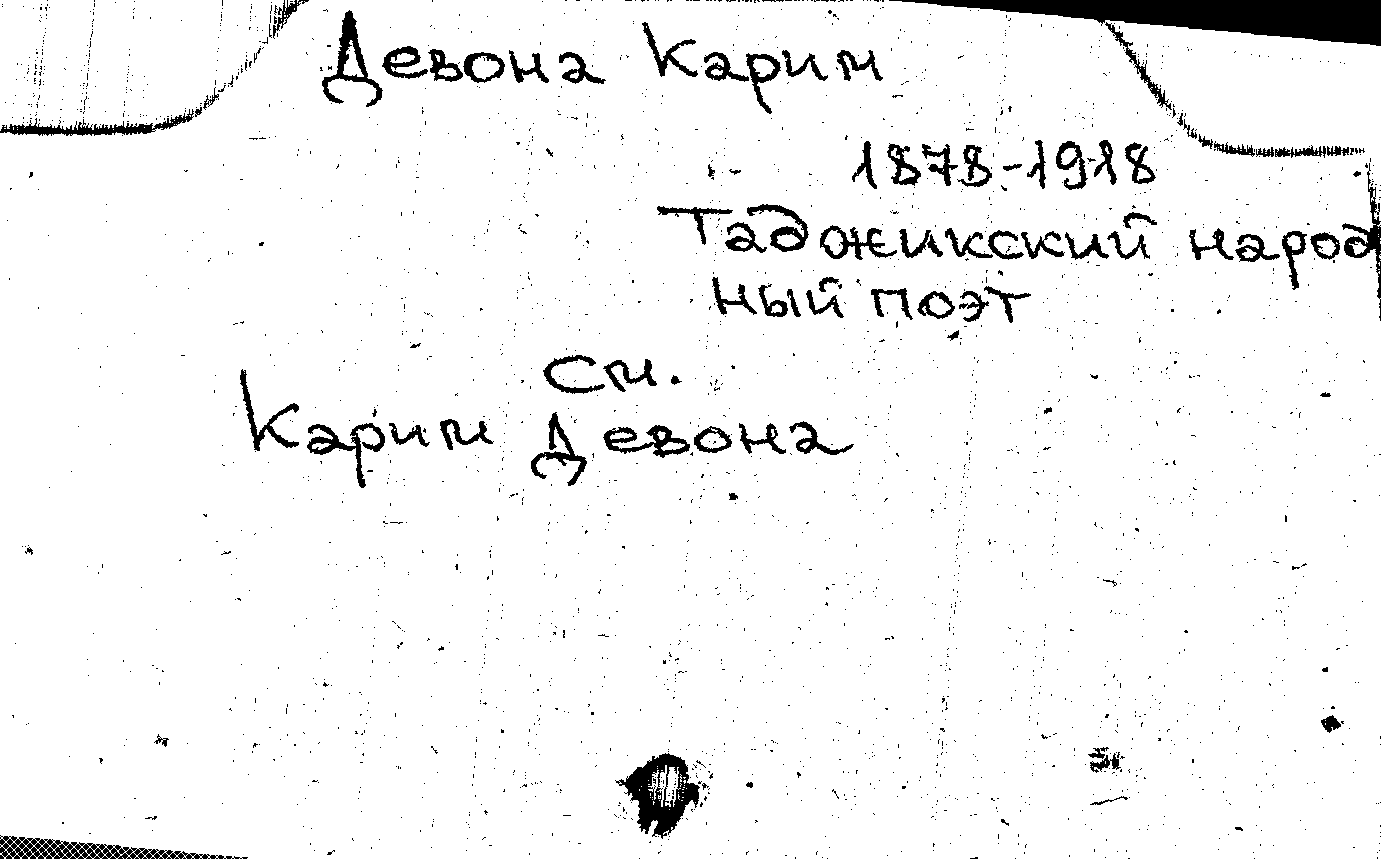 Девона Карим
1878-1918
Таджикский народ
ный поэт
См.
Карим Девона